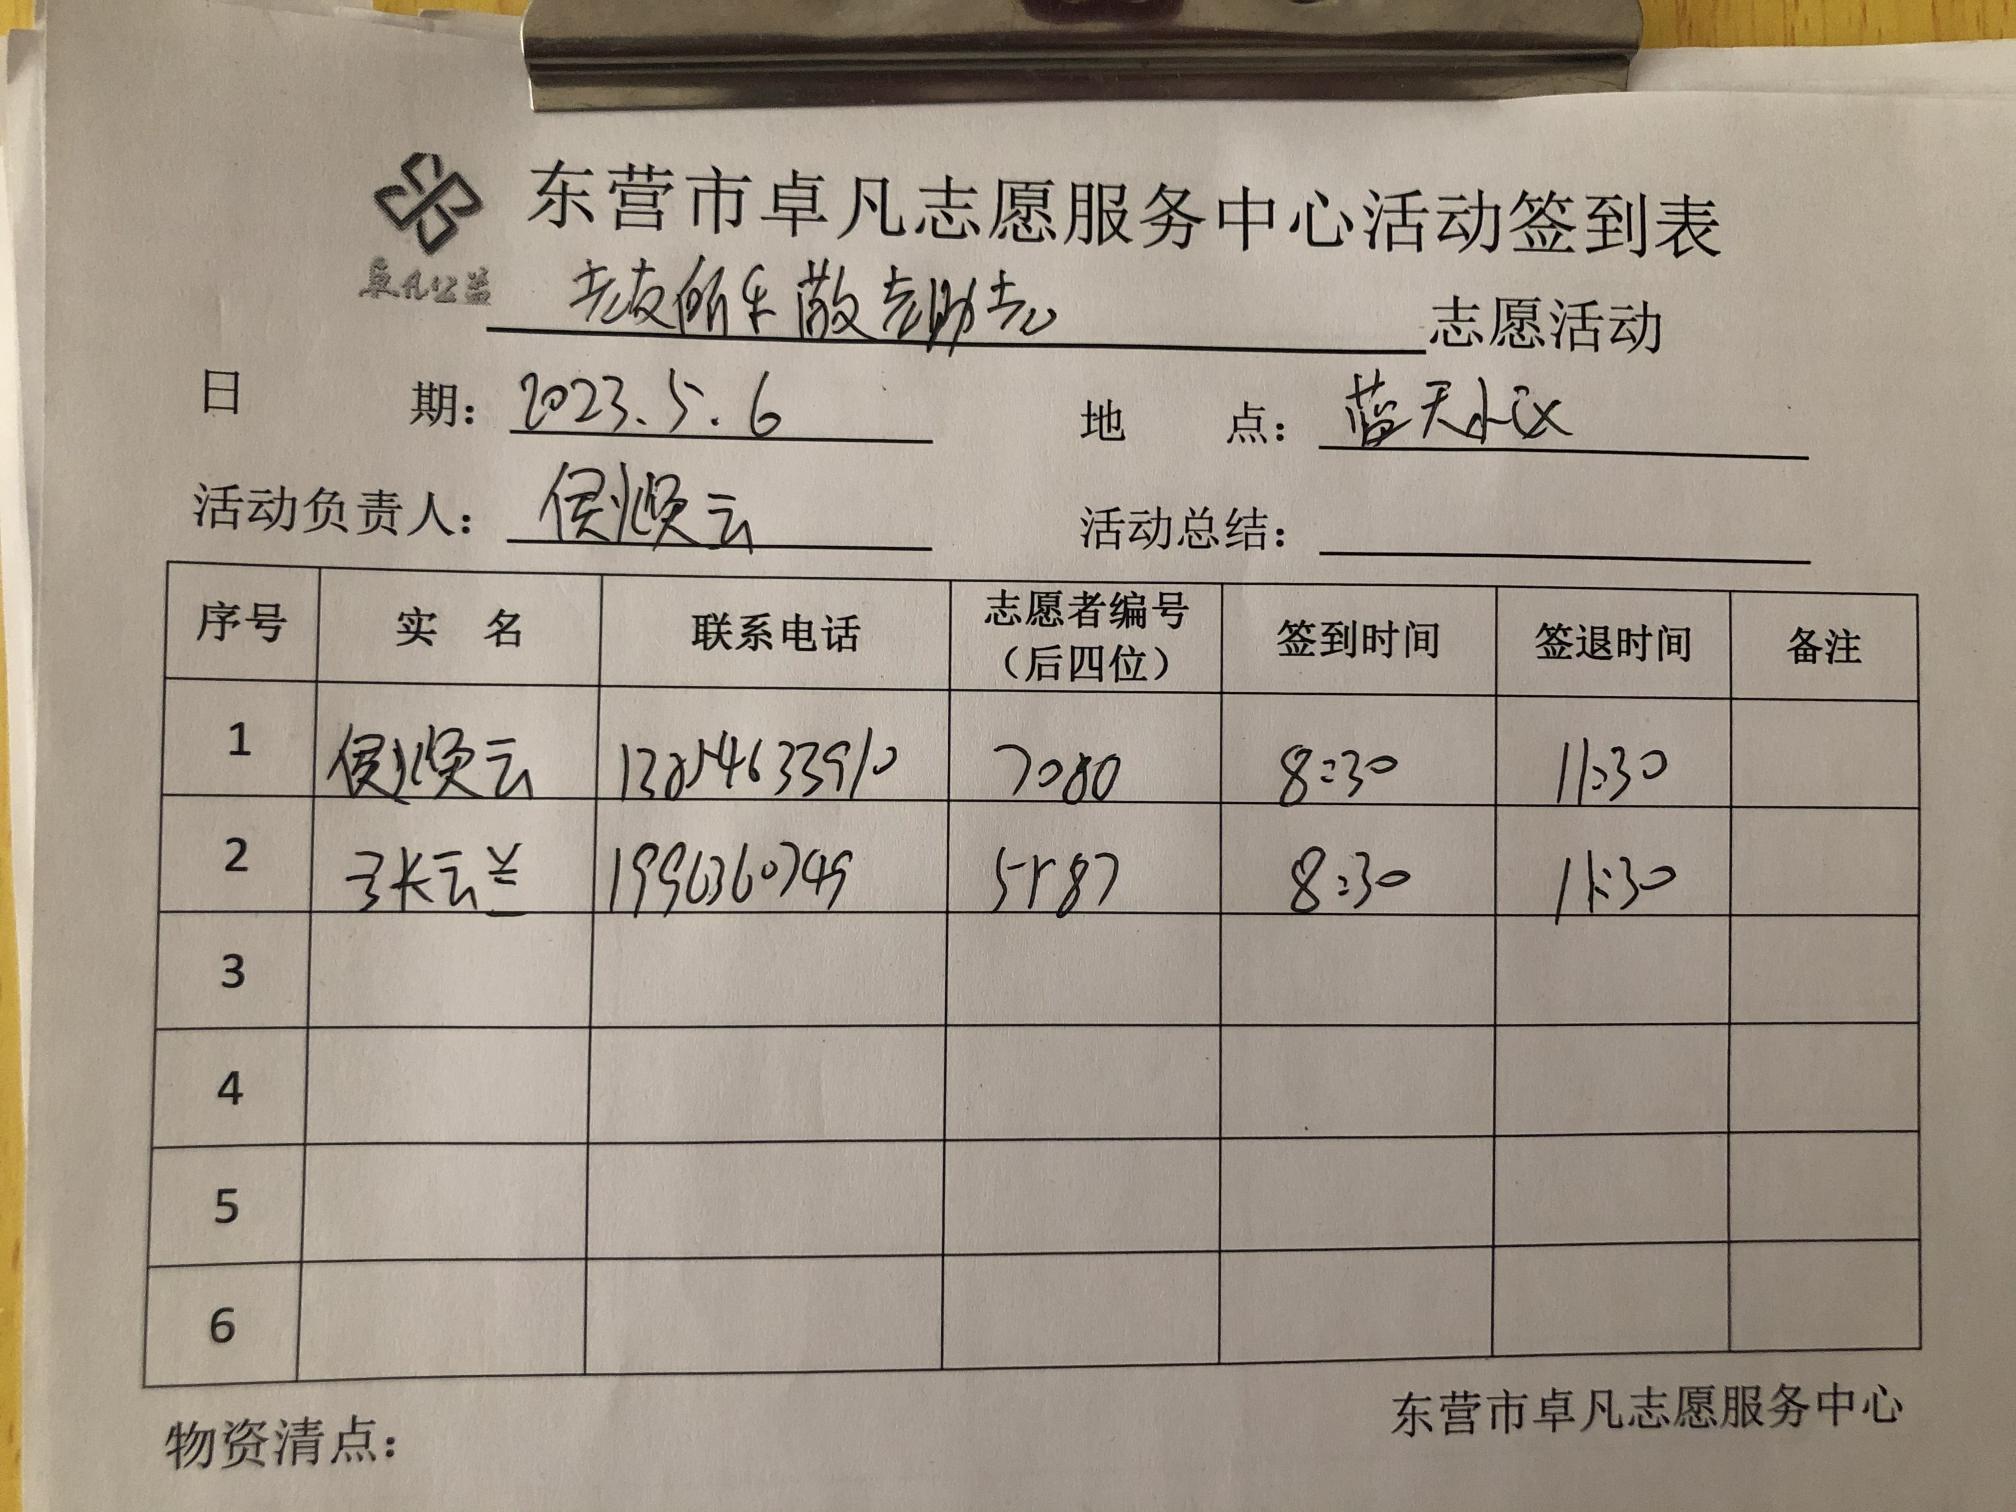 东营市卓凡志愿服务中心活动签到表
卓凡公益
老友所乐 敬老助老 志愿活动
日 期： 2023.5.6 地 点： 蓝天小区
活动负责人： 侯顺云 活动总结：
序号 实 名 联系电话 志愿者编号（后四位） 签到时间 签退时间 备注
1 侯顺云 13854633910 7080 8:30 11:30
2 云兰 5587 8:30 11:30
3
4
5
6
物资清点： 东营市卓凡志愿服务中心